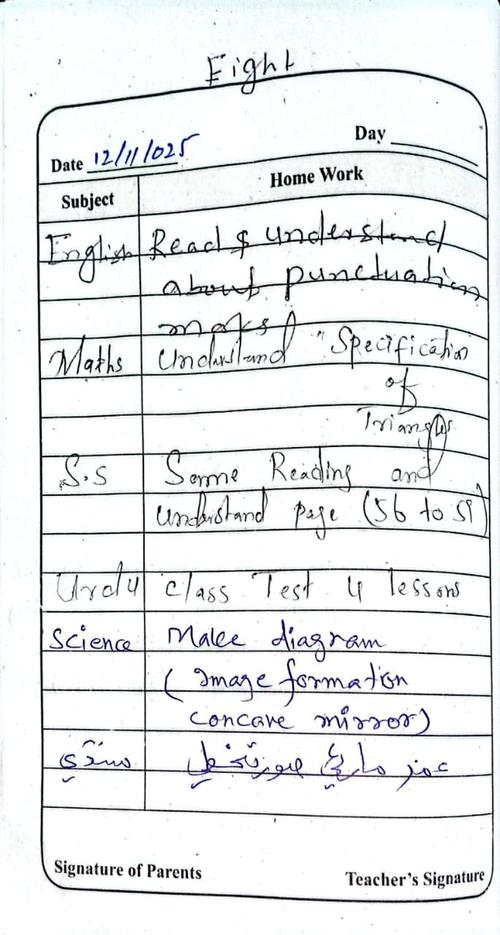 Eight
Date 12/11/025 Day
Subject Home Work
English Read & understand
about punctuation
marks
Maths Understand "Specification
of
Triangles
S.S Same Reading and
understand page (56 to 59)
Urdu class Test 4 lessons
Science Make diagram
(Image formation
concave mirror)
سنڌي عمر مارئي
Signature of Parents Teacher's Signature